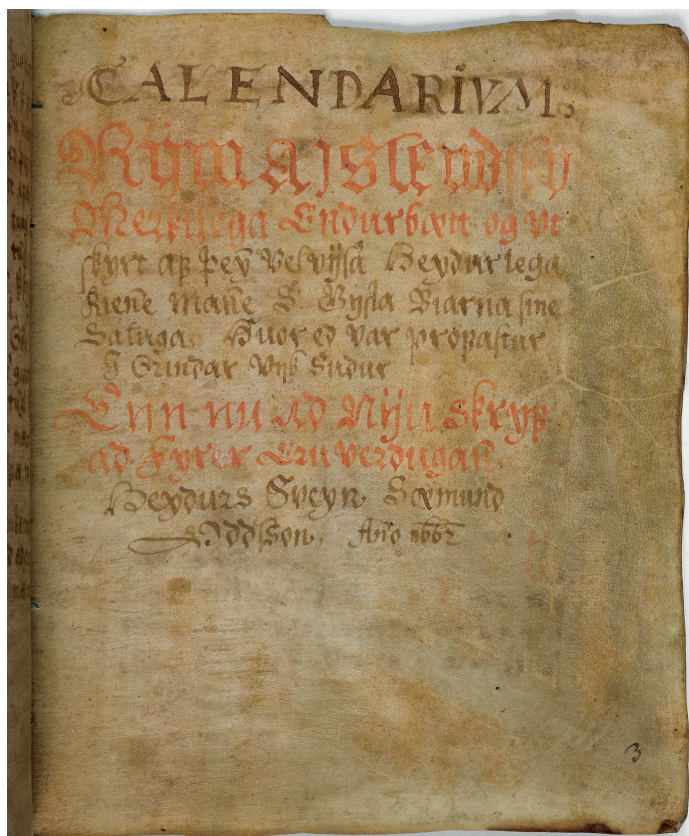 CALENDARIVM.
Rijm a Jslendsku
Merkilega Endurbætt og vt
skyrt af þey Velvijsa Heydurlega
kiene mañe S. Gysla Biarna syne
Saluga. Huor ed var propastur
J Grindar Vijk Sudur
Enn nu ad Nyiu skryf
ad Fyrer Eruverdugañ.
Heydurs Sveyn. Sæmund
Oddsson. Año 1662
3